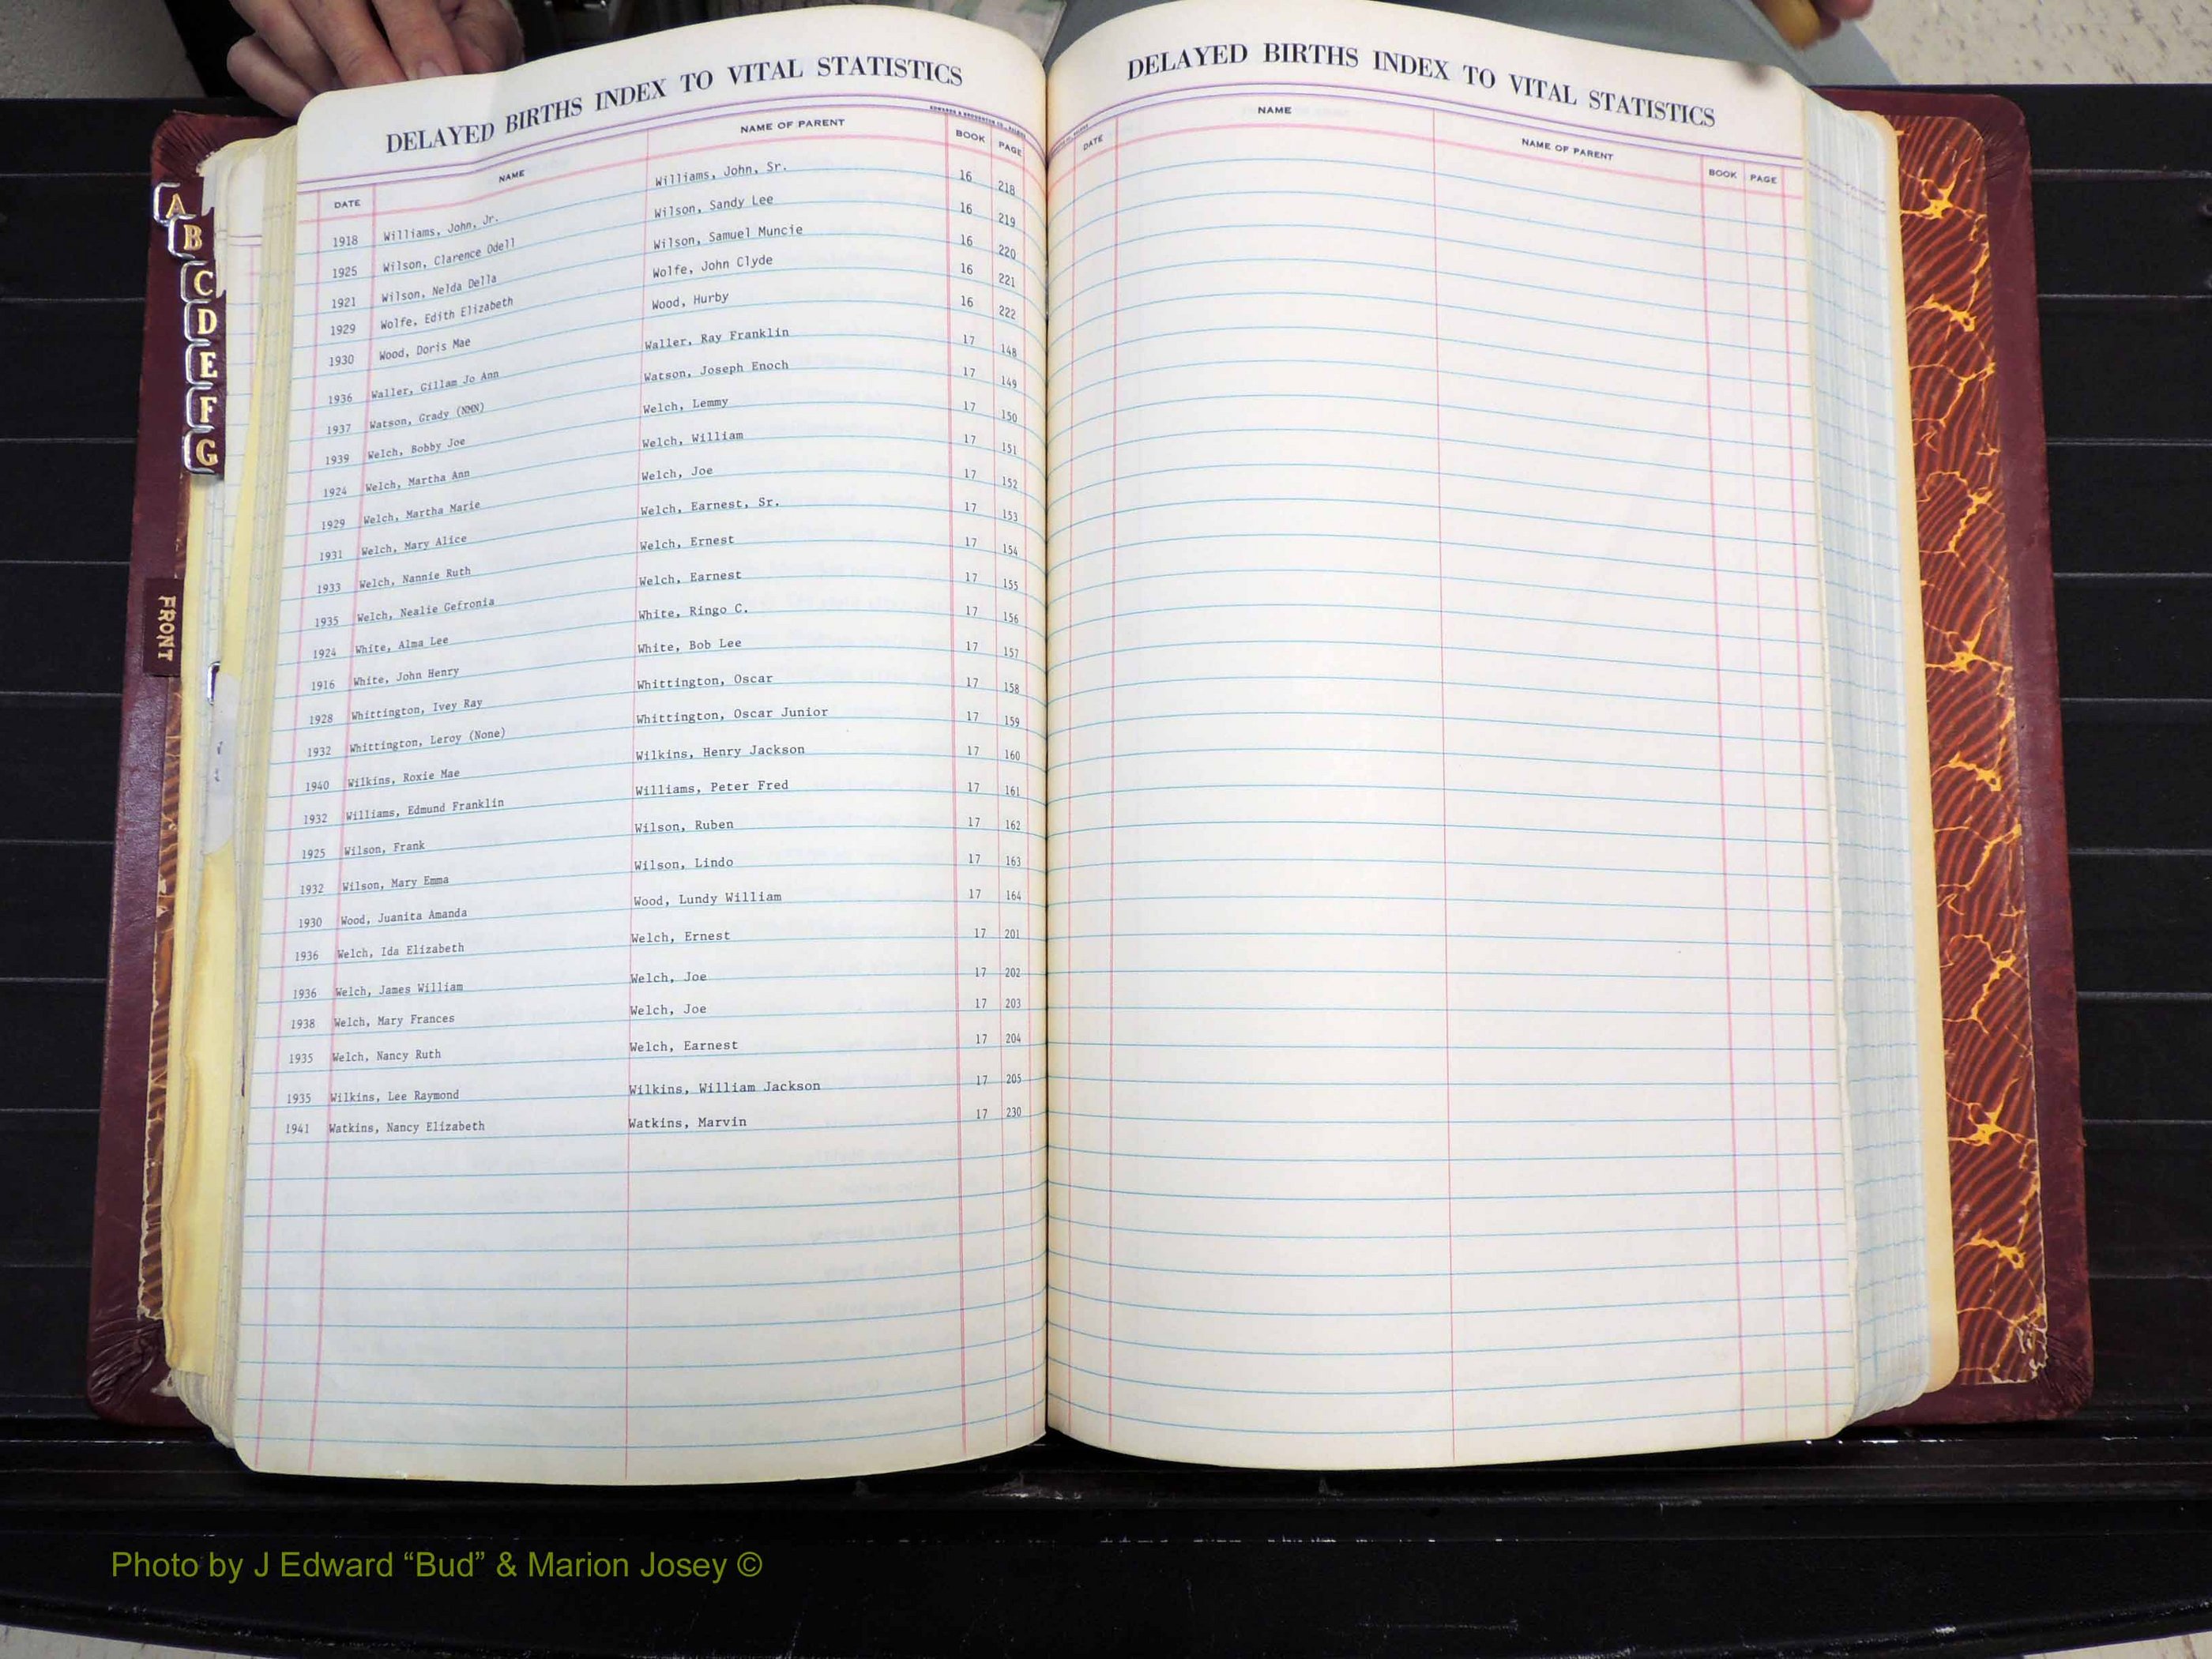 DELAYED BIRTHS INDEX TO VITAL STATISTICS
DATE NAME NAME OF PARENT BOOK PAGE
1918 Williams, John, Jr. Williams, John, Sr. 16 218
1925 Wilson, Clarence Odell Wilson, Sandy Lee 16 219
1921 Wilson, Nelda Della Wilson, Samuel Muncie 16 220
1929 Wolfe, Edith Elizabeth Wolfe, John Clyde 16 221
1930 Wood, Doris Mae Wood, Hurby 16 222
1936 Waller, Gillam Jo Ann Waller, Ray Franklin 17 148
1937 Watson, Grady (NMN) Watson, Joseph Enoch 17 149
1939 Welch, Bobby Joe Welch, Lemmy 17 150
1924 Welch, Martha Ann Welch, William 17 151
1929 Welch, Martha Marie Welch, Joe 17 152
1931 Welch, Mary Alice Welch, Earnest, Sr. 17 153
1933 Welch, Nannie Ruth Welch, Ernest 17 154
1935 Welch, Nealie Gefronia Welch, Earnest 17 155
1924 White, Alma Lee White, Ringo C. 17 156
1916 White, John Henry White, Bob Lee 17 157
1928 Whittington, Ivey Ray Whittington, Oscar 17 158
1932 Whittington, Leroy (None) Whittington, Oscar Junior 17 159
1940 Wilkins, Roxie Mae Wilkins, Henry Jackson 17 160
1932 Williams, Edmund Franklin Williams, Peter Fred 17 161
1925 Wilson, Frank Wilson, Ruben 17 162
1932 Wilson, Mary Emma Wilson, Lindo 17 163
1930 Wood, Juanita Amanda Wood, Lundy William 17 164
1936 Welch, Ida Elizabeth Welch, Ernest 17 201
1936 Welch, James William Welch, Joe 17 202
1938 Welch, Mary Frances Welch, Joe 17 203
1935 Welch, Nancy Ruth Welch, Earnest 17 204
1935 Wilkins, Lee Raymond Wilkins, William Jackson 17 205
1941 Watkins, Nancy Elizabeth Watkins, Marvin 17 230
DELAYED BIRTHS INDEX TO VITAL STATISTICS
DATE NAME NAME OF PARENT BOOK PAGE
A
B
C
D
E
F
G
FRONT
Photo by J Edward “Bud” & Marion Josey ©